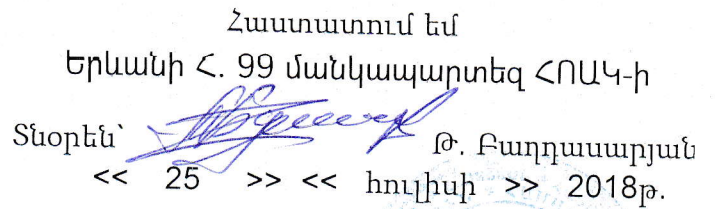 Հաստատում եմ
Երևանի Հ. 99 մանկապարտեզ ՀՈԱԿ-ի
Տնօրեն՝ Թ. Բաղդասարյան
<< 25 >> << հուլիսի >> 2018թ.